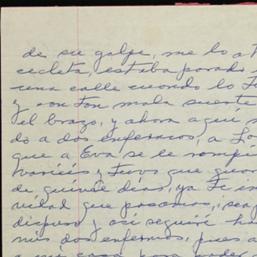 de su golpe, me lo a
cicleta, estaba parado
una calle cuando lo
y con tan mala suerte
el brazo, y ahora aqui
do a dos enfermos, a
que a Eva se le rompi
varices y tuvo que guar
de quince dias, ya te i
vidad que pasamos,
dispuso y asi seguiré ha
mis dos enfermos, pues a
a mi casa para poder